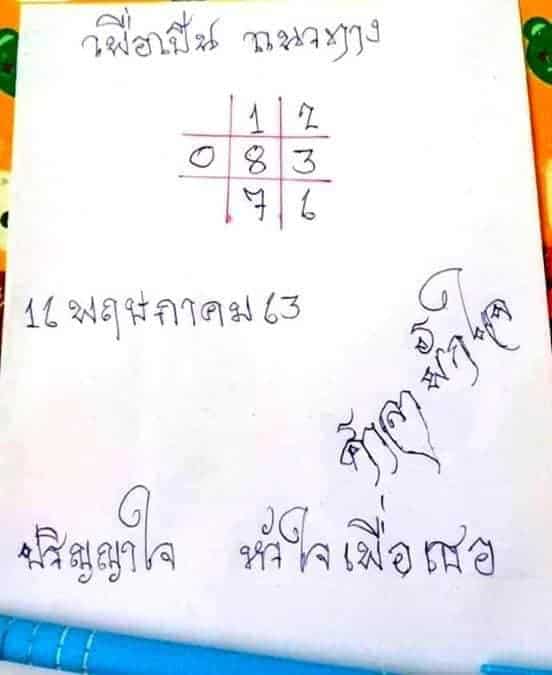 เพื่อเป็น แนวทาง
1 2
0 8 3
7 6
16 พฤษภาคม 63
ปริญญาใจ หัวใจเพื่อเธอ